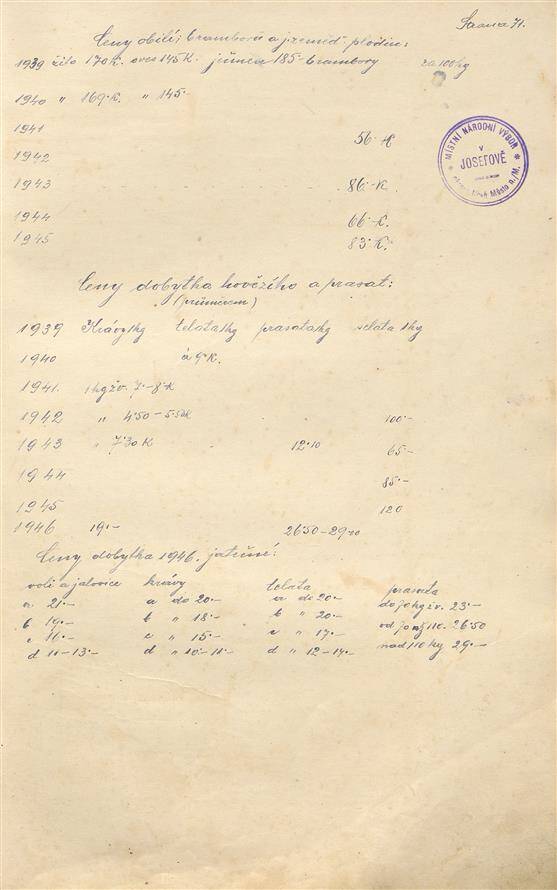 Strana 71.
Ceny obilí, bramborů a j. zeměd. plodin:
1939 žito 170K. oves 145K. ječmen 185- brambory za 100kg
1940 " 169.K. " 145.-
1941 56.-K
1942
1943 86.-K.
1944 66.-K.
1945 83.-K.
MÍSTNÍ NÁRODNÍ VÝBOR
V
JOSEFOVĚ
Město n./M.
Ceny dobytka hovězího a prasat:
(průměrem)
1939 Krávy 1kg telata 1kg prasata kg selata 1kg
1940 á 9.K.
1941. 1kg živ. 7.-8.K
1942 " 4.50-5.50K 100.-
1943 " 7.30K 12.10 65.-
1944 85.-
1945 120
1946 19.- 26.50-29.
Ceny dobytka 1946. jateční:
voli a jalovice krávy telata prasata
a 21.- a do 20.- a do 20.- do 70 kg ž.v. 23.-
b 19.- b " 18.- b " 20.- od 70 110. 26.50
c 16.- c " 15.- c " 17.- nad 110 kg 29.-
d 11-13.- d " 10.-11.- d " 12-14.-